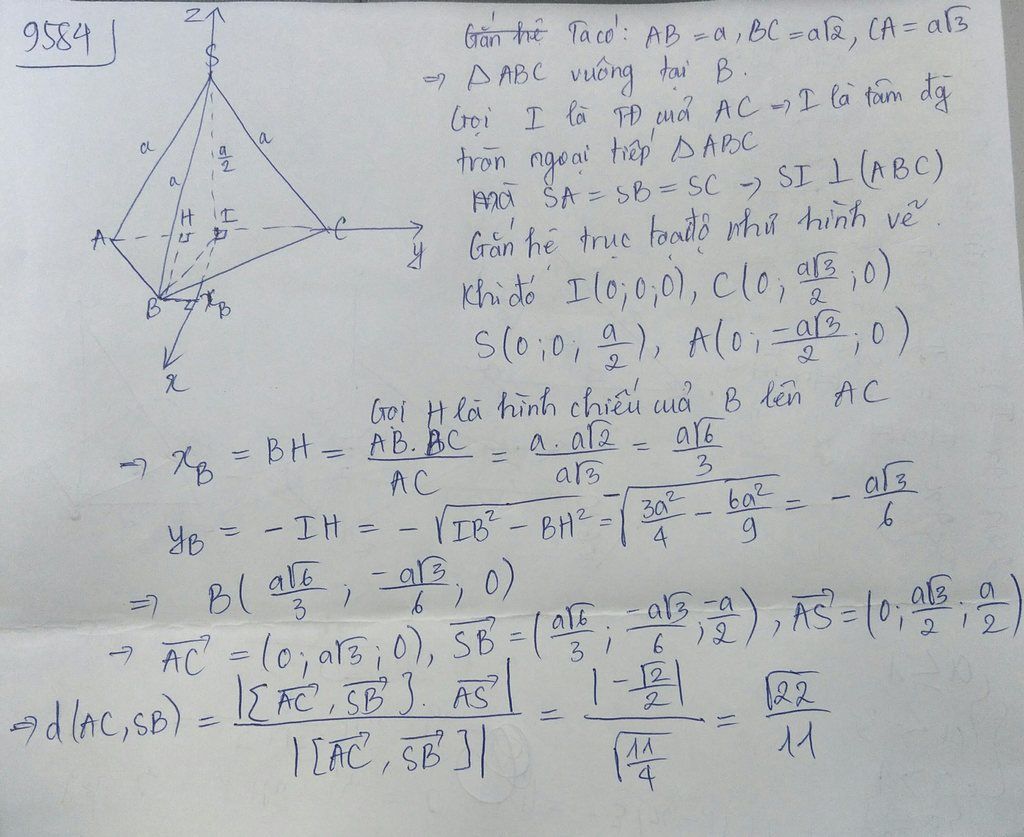 9584
Gắn hệ Ta có: AB = a, BC = a√2, CA = a√3
⇒ △ABC vuông tại B.
Gọi I là TĐ của AC ⇒ I là tâm đg
tròn ngoại tiếp △ABC
mà SA = SB = SC → SI ⊥ (ABC)
Gắn hệ trục toạ độ như hình vẽ.
Khi đó I(0;0;0), C(0; a√3/2; 0)
S(0;0; a/2), A(0; -a√3/2; 0)
z
S
a
a
a
a/2
A
H
I
C
y
B
x_B
x
Gọi H là hình chiếu của B lên AC
⇒ x_B = BH = AB.BC/AC = a.a√2/a√3 = a√6/3
y_B = -IH = -√(IB² - BH²) = -√(3a²/4 - 6a²/9) = -a√3/6
⇒ B(a√6/3; -a√3/6; 0)
→ AC→ = (0; a√3; 0), SB→ = (a√6/3; -a√3/6; -a/2), AS→ = (0; a√3/2; a/2)
⇒ d(AC, SB) = |[AC→, SB→].AS→| / |[AC→, SB→]| = |-√2/2| / √(11/4) = √22/11